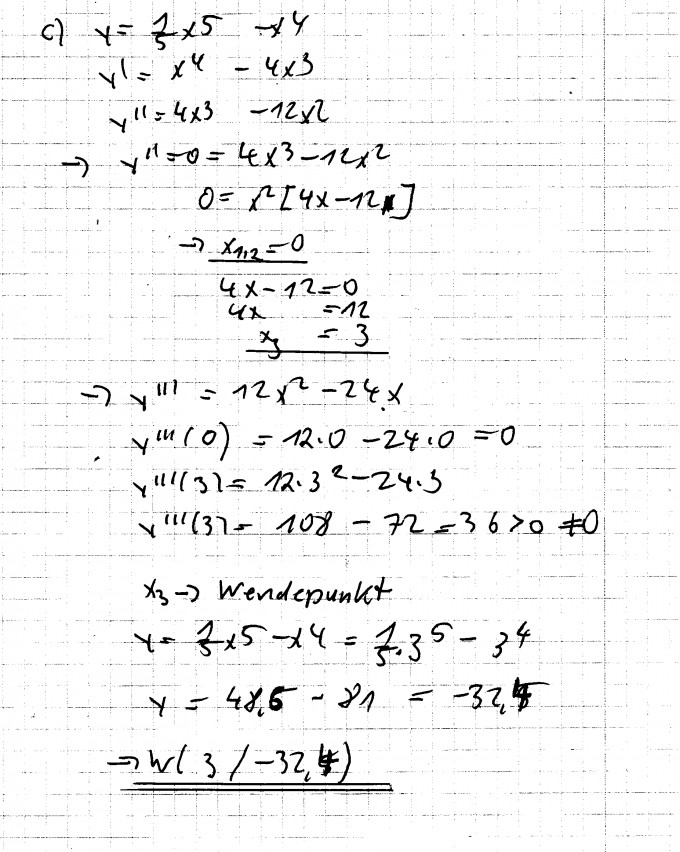 c) y = 1/5 x5 - x4
y' = x4 - 4x3
y'' = 4x3 - 12x2
→ y'' = 0 = 4x3 - 12x2
0 = x2 [4x - 12]
→ x1,2 = 0
4x - 12 = 0
4x = 12
x3 = 3
→ y''' = 12x2 - 24x
y'''(0) = 12·0 - 24·0 = 0
y'''(3) = 12·3² - 24·3
y'''(3) = 108 - 72 = 36 > 0 ≠ 0
x3 → Wendepunkt
y = 1/5 x5 - x4 = 1/5·3⁵ - 3⁴
y = 48,6 - 81 = -32,4
→ W( 3 / -32,4)